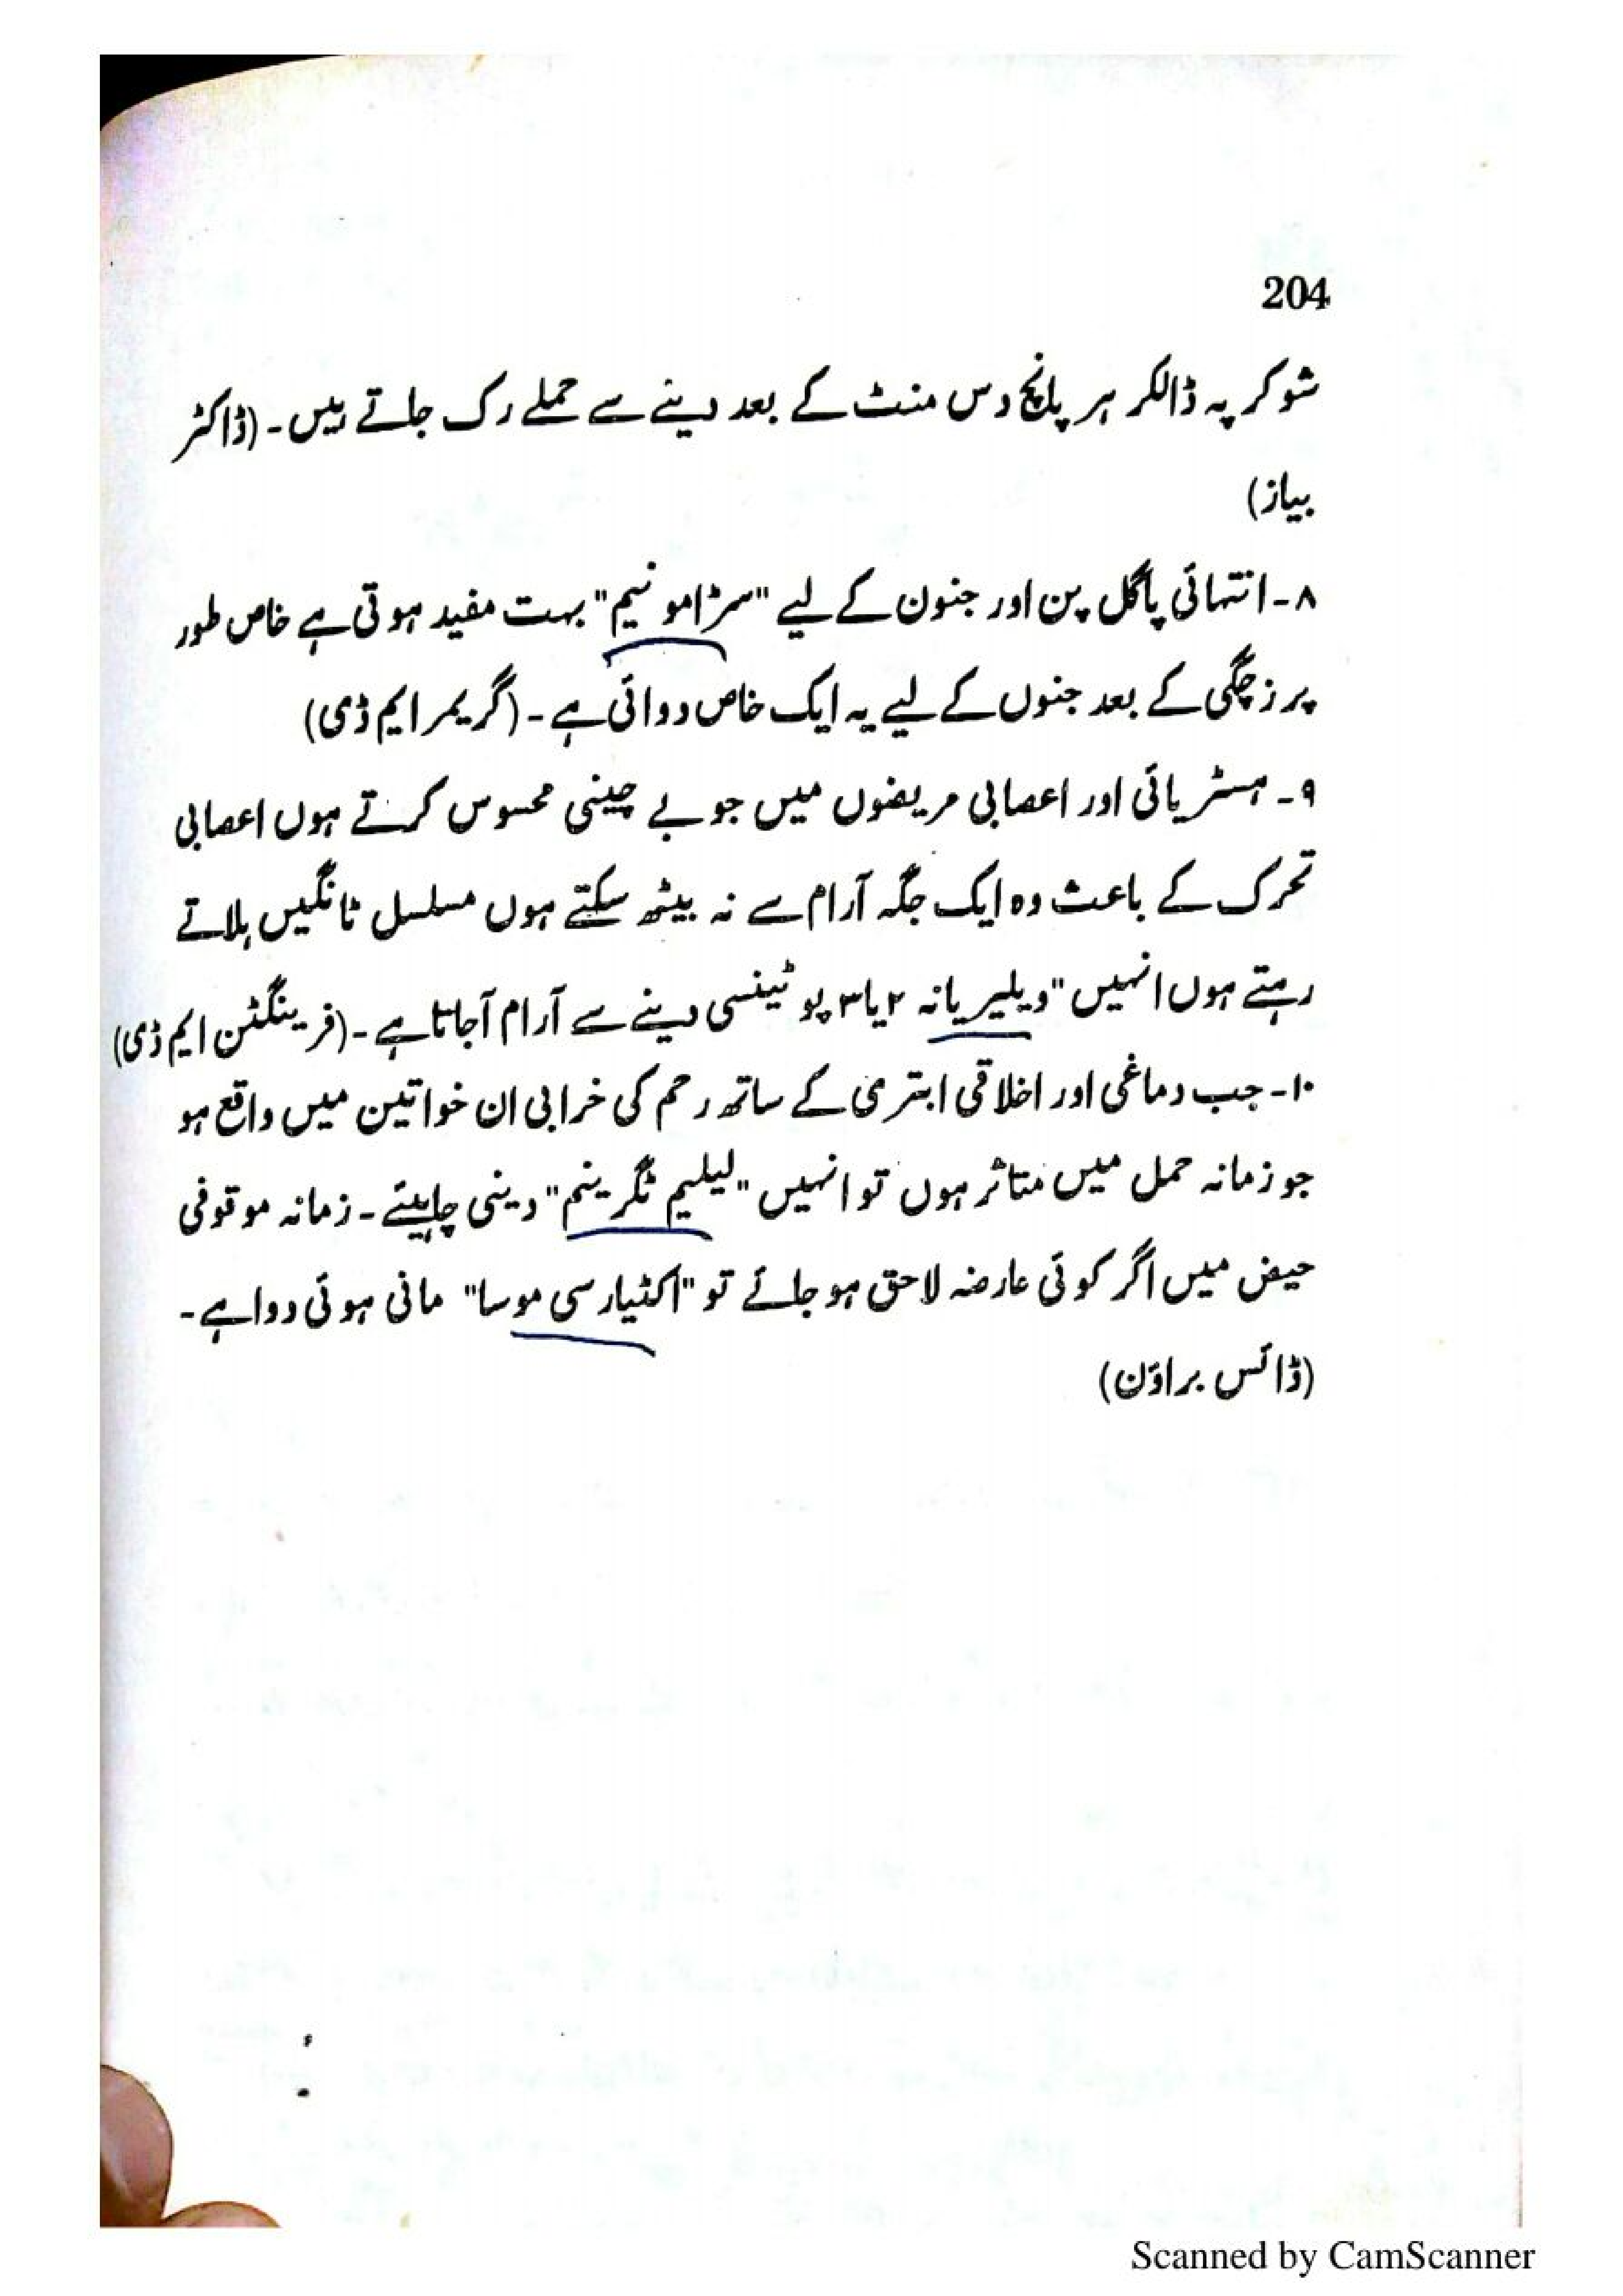 204
شوگر پہ ڈالکر ہر پانچ دس منٹ کے بعد دینے سے حملے رک جاتے ہیں۔ (ڈاکٹر
بیاز)
۸۔ انتہائی پاگل پن اور جنون کے لیے "سٹرامونیم" بہت مفید ہوتی ہے خاص طور
پر زچگی کے بعد جنوں کے لیے یہ ایک خاص دوائی ہے۔ (گریمر ایم ڈی)
۹۔ ہسٹریائی اور اعصابی مریضوں میں جو بے چینی محسوس کرتے ہوں اعصابی
تحرک کے باعث وہ ایک جگہ آرام سے نہ بیٹھ سکتے ہوں مسلسل ٹانگیں ہلاتے
رہتے ہوں انہیں "ویلیریانہ ۲ یا ۳ پوٹینسی دینے سے آرام آجاتا ہے۔ (فرینگٹن ایم ڈی)
۱۰۔ جب دماغی اور اخلاقی ابتری کے ساتھ رحم کی خرابی ان خواتین میں واقع ہو
جو زمانہ حمل میں متاثر ہوں تو انہیں "لیلیم ٹگرینم" دینی چاہیئے۔ زمانہ موقوفی
حیض میں اگر کوئی عارضہ لاحق ہو جائے تو "اکٹیارسی موسا" مانی ہوئی دوا ہے۔
(ڈائس براؤن)
Scanned by CamScanner